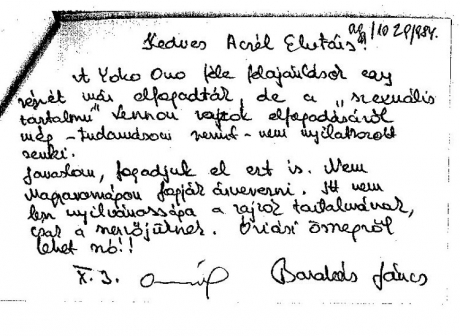 ag/10 28/984.
Kedves Aczél Elvtárs!
A Yoko Ono féle felajánlások egy
részét már elfogadták, de a „szexuális
tartalmu" Lennon rajzok elfogadásáról
még - tudomásom szerint - nem nyilatkozott
senki.
Javaslom, fogadjuk el ezt is. Nem
Magyarországon fogják árverezni. Itt nem
lesz nyilvánossága a rajzok tartalmának,
csak a vevőjüknek. Óriási összegről
lehet szó!!
X. 3. Barabás János